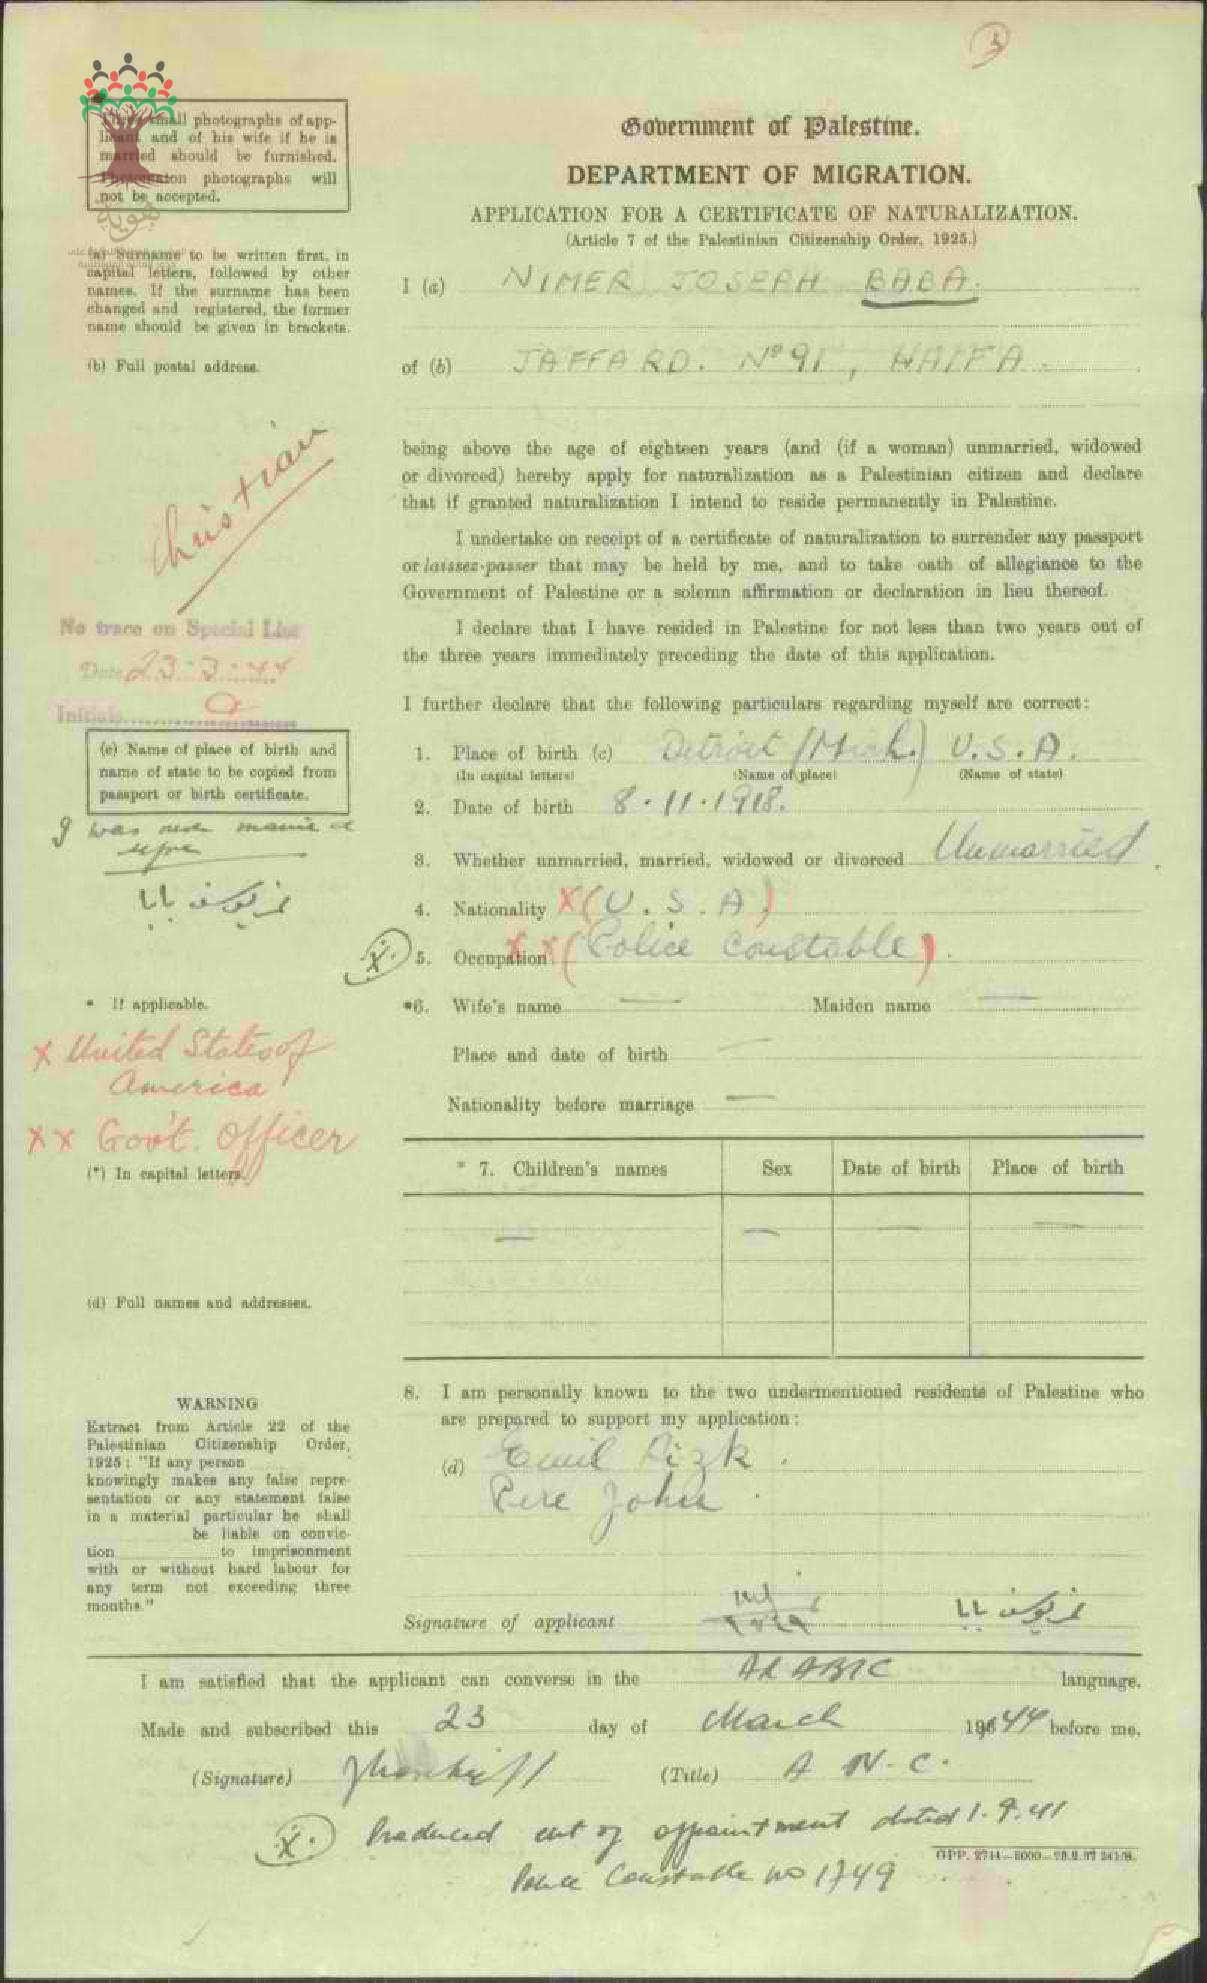 3
Three small photographs of app-
licant and of his wife if he is
married should be furnished.
Photomaton photographs will
not be accepted.
هوية
Government of Palestine.
DEPARTMENT OF MIGRATION.
APPLICATION FOR A CERTIFICATE OF NATURALIZATION.
(Article 7 of the Palestinian Citizenship Order, 1925.)
(a) Surname to be written first, in
capital letters, followed by other
names. If the surname has been
changed and registered, the former
name should be given in brackets.
I (a) NIMER JOSEPH BABA.
(b) Full postal address.
of (b) JAFFA RD. Nº 91, HAIFA.
being above the age of eighteen years (and (if a woman) unmarried, widowed
or divorced) hereby apply for naturalization as a Palestinian citizen and declare
that if granted naturalization I intend to reside permanently in Palestine.
Christian
I undertake on receipt of a certificate of naturalization to surrender any passport
or laissez-passer that may be held by me, and to take oath of allegiance to the
Government of Palestine or a solemn affirmation or declaration in lieu thereof.
I declare that I have resided in Palestine for not less than two years out of
the three years immediately preceding the date of this application.
No trace on Special List
Date 23.3.44
Initials
I further declare that the following particulars regarding myself are correct:
(c) Name of place of birth and
name of state to be copied from
passport or birth certificate.
1. Place of birth (c) Detroit (Mich.) U.S.A.
(In capital letters) (Name of place) (Name of state)
2. Date of birth 8.11.1918.
I was never married
نمر يوسف بابا
3. Whether unmarried, married, widowed or divorced Unmarried.
4. Nationality X (U.S.A)
X. 5. Occupation X X (Police Constable).
* If applicable.
*6. Wife's name — Maiden name —
Place and date of birth —
Nationality before marriage —
X United States of
America
XX Gov't. Officer
(*) In capital letters.
* 7. Children's names Sex Date of birth Place of birth
— — — —
(d) Full names and addresses.
8. I am personally known to the two undermentioned residents of Palestine who
are prepared to support my application:
(d) Emil Rizk.
Pere John.
WARNING
Extract from Article 22 of the
Palestinian Citizenship Order,
1925: "If any person
knowingly makes any false repre-
sentation or any statement false
in a material particular he shall
be liable on convic-
tion to imprisonment
with or without hard labour for
any term not exceeding three
months."
Signature of applicant نمر يوسف بابا
I am satisfied that the applicant can converse in the ARABIC language.
Made and subscribed this 23 day of March 1944 before me.
(Signature) (Title) A N.C.
X. Produced cert of appointment dated 1.9.41
Police Constable no 1749
GPP. 2744—5000—28.2.37 241/8.